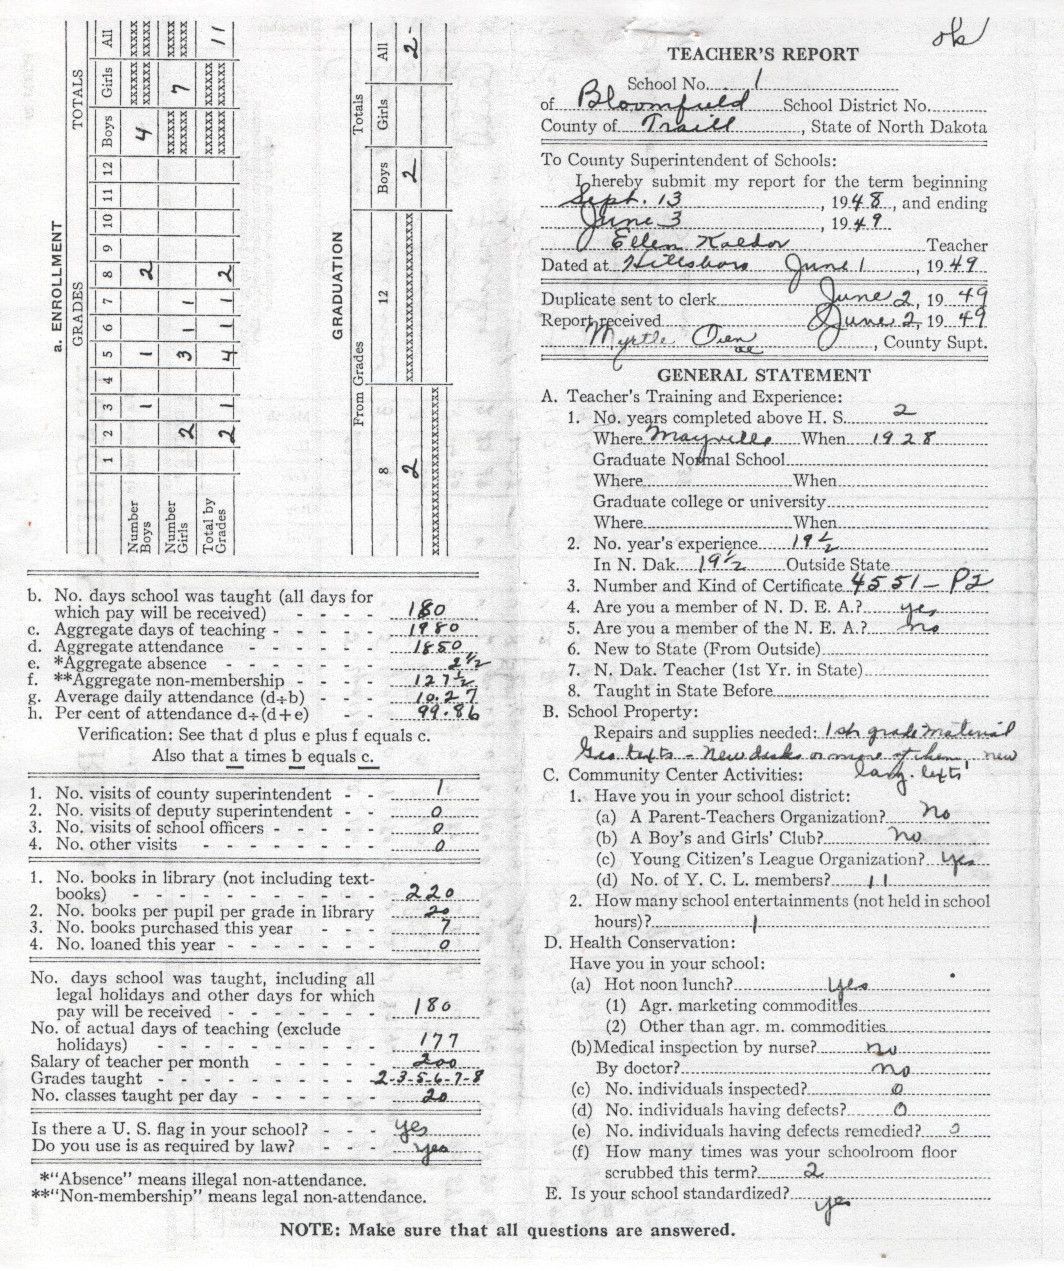 a. ENROLLMENT
GRADES TOTALS
1 2 3 4 5 6 7 8 9 10 11 12 Boys Girls All
Number Boys 1 1 2 4 xxxxxx xxxxx
xxxxxx xxxxx
Number Girls 2 3 1 1 xxxxxx 7 xxxxx
xxxxxx xxxxx
Total by Grades 2 1 4 1 1 2 xxxxxx xxxxxx 11
xxxxxx xxxxxx
GRADUATION
From Grades Totals
8 12 Boys Girls All
2 xxxxxxxxxxxxxxxxxxxxxx 2 2
xxxxxxxxxxxxxxxxxxxxxx
b. No. days school was taught (all days for
which pay will be received) - - - - 180
c. Aggregate days of teaching - - - - - 1980
d. Aggregate attendance - - - - - - 1850
e. *Aggregate absence - - - - - - - 2 1/2
f. **Aggregate non-membership - - - - 127 1/2
g. Average daily attendance (d÷b) - - - 10.27
h. Per cent of attendance d÷(d+e) - - 99.86
Verification: See that d plus e plus f equals c.
Also that a times b equals c.
1. No. visits of county superintendent - - 1
2. No. visits of deputy superintendent - - 0
3. No. visits of school officers - - - - - 0
4. No. other visits - - - - - - - - 0
1. No. books in library (not including text-
books) - - - - - - - - - - 220
2. No. books per pupil per grade in library 20
3. No. books purchased this year - - - 7
4. No. loaned this year - - - - - - - 0
No. days school was taught, including all
legal holidays and other days for which
pay will be received - - - - - - - 180
No. of actual days of teaching (exclude
holidays) - - - - - - - - - - 177
Salary of teacher per month - - - - 200
Grades taught - - - - - - - - - 2-3-5-6-7-8
No. classes taught per day - - - - - 20
Is there a U. S. flag in your school? - - - yes
Do you use is as required by law? - - - yes
*"Absence" means illegal non-attendance.
**"Non-membership" means legal non-attendance.
ok
TEACHER'S REPORT
School No. 1
of Bloomfield School District No.
County of Traill, State of North Dakota
To County Superintendent of Schools:
I hereby submit my report for the term beginning
Sept. 13, 1948, and ending
June 3, 1949.
Ellen Kaldor Teacher
Dated at Hillsboro June 1, 1949
Duplicate sent to clerk June 2, 1949
Report received June 2, 1949
Myrtle Oien, County Supt.
GENERAL STATEMENT
A. Teacher's Training and Experience:
1. No. years completed above H. S. 2
Where Mayville When 1928
Graduate Normal School
Where When
Graduate college or university
Where When
2. No. year's experience 19 1/2
In N. Dak. 19 1/2 Outside State
3. Number and Kind of Certificate 4551-P2
4. Are you a member of N. D. E. A.? yes
5. Are you a member of the N. E. A.? no
6. New to State (From Outside)
7. N. Dak. Teacher (1st Yr. in State)
8. Taught in State Before
B. School Property:
Repairs and supplies needed: 1st grade material
Geo. texts - New desks or more of them new
lang. texts
C. Community Center Activities:
1. Have you in your school district:
(a) A Parent-Teachers Organization? No
(b) A Boy's and Girls' Club? No
(c) Young Citizen's League Organization? Yes
(d) No. of Y. C. L. members? 11
2. How many school entertainments (not held in school
hours)? 1
D. Health Conservation:
Have you in your school:
(a) Hot noon lunch? Yes
(1) Agr. marketing commodities
(2) Other than agr. m. commodities
(b) Medical inspection by nurse? no
By doctor? no
(c) No. individuals inspected? 0
(d) No. individuals having defects? 0
(e) No. individuals having defects remedied? 0
(f) How many times was your schoolroom floor
scrubbed this term? 2
E. Is your school standardized? yes
NOTE: Make sure that all questions are answered.